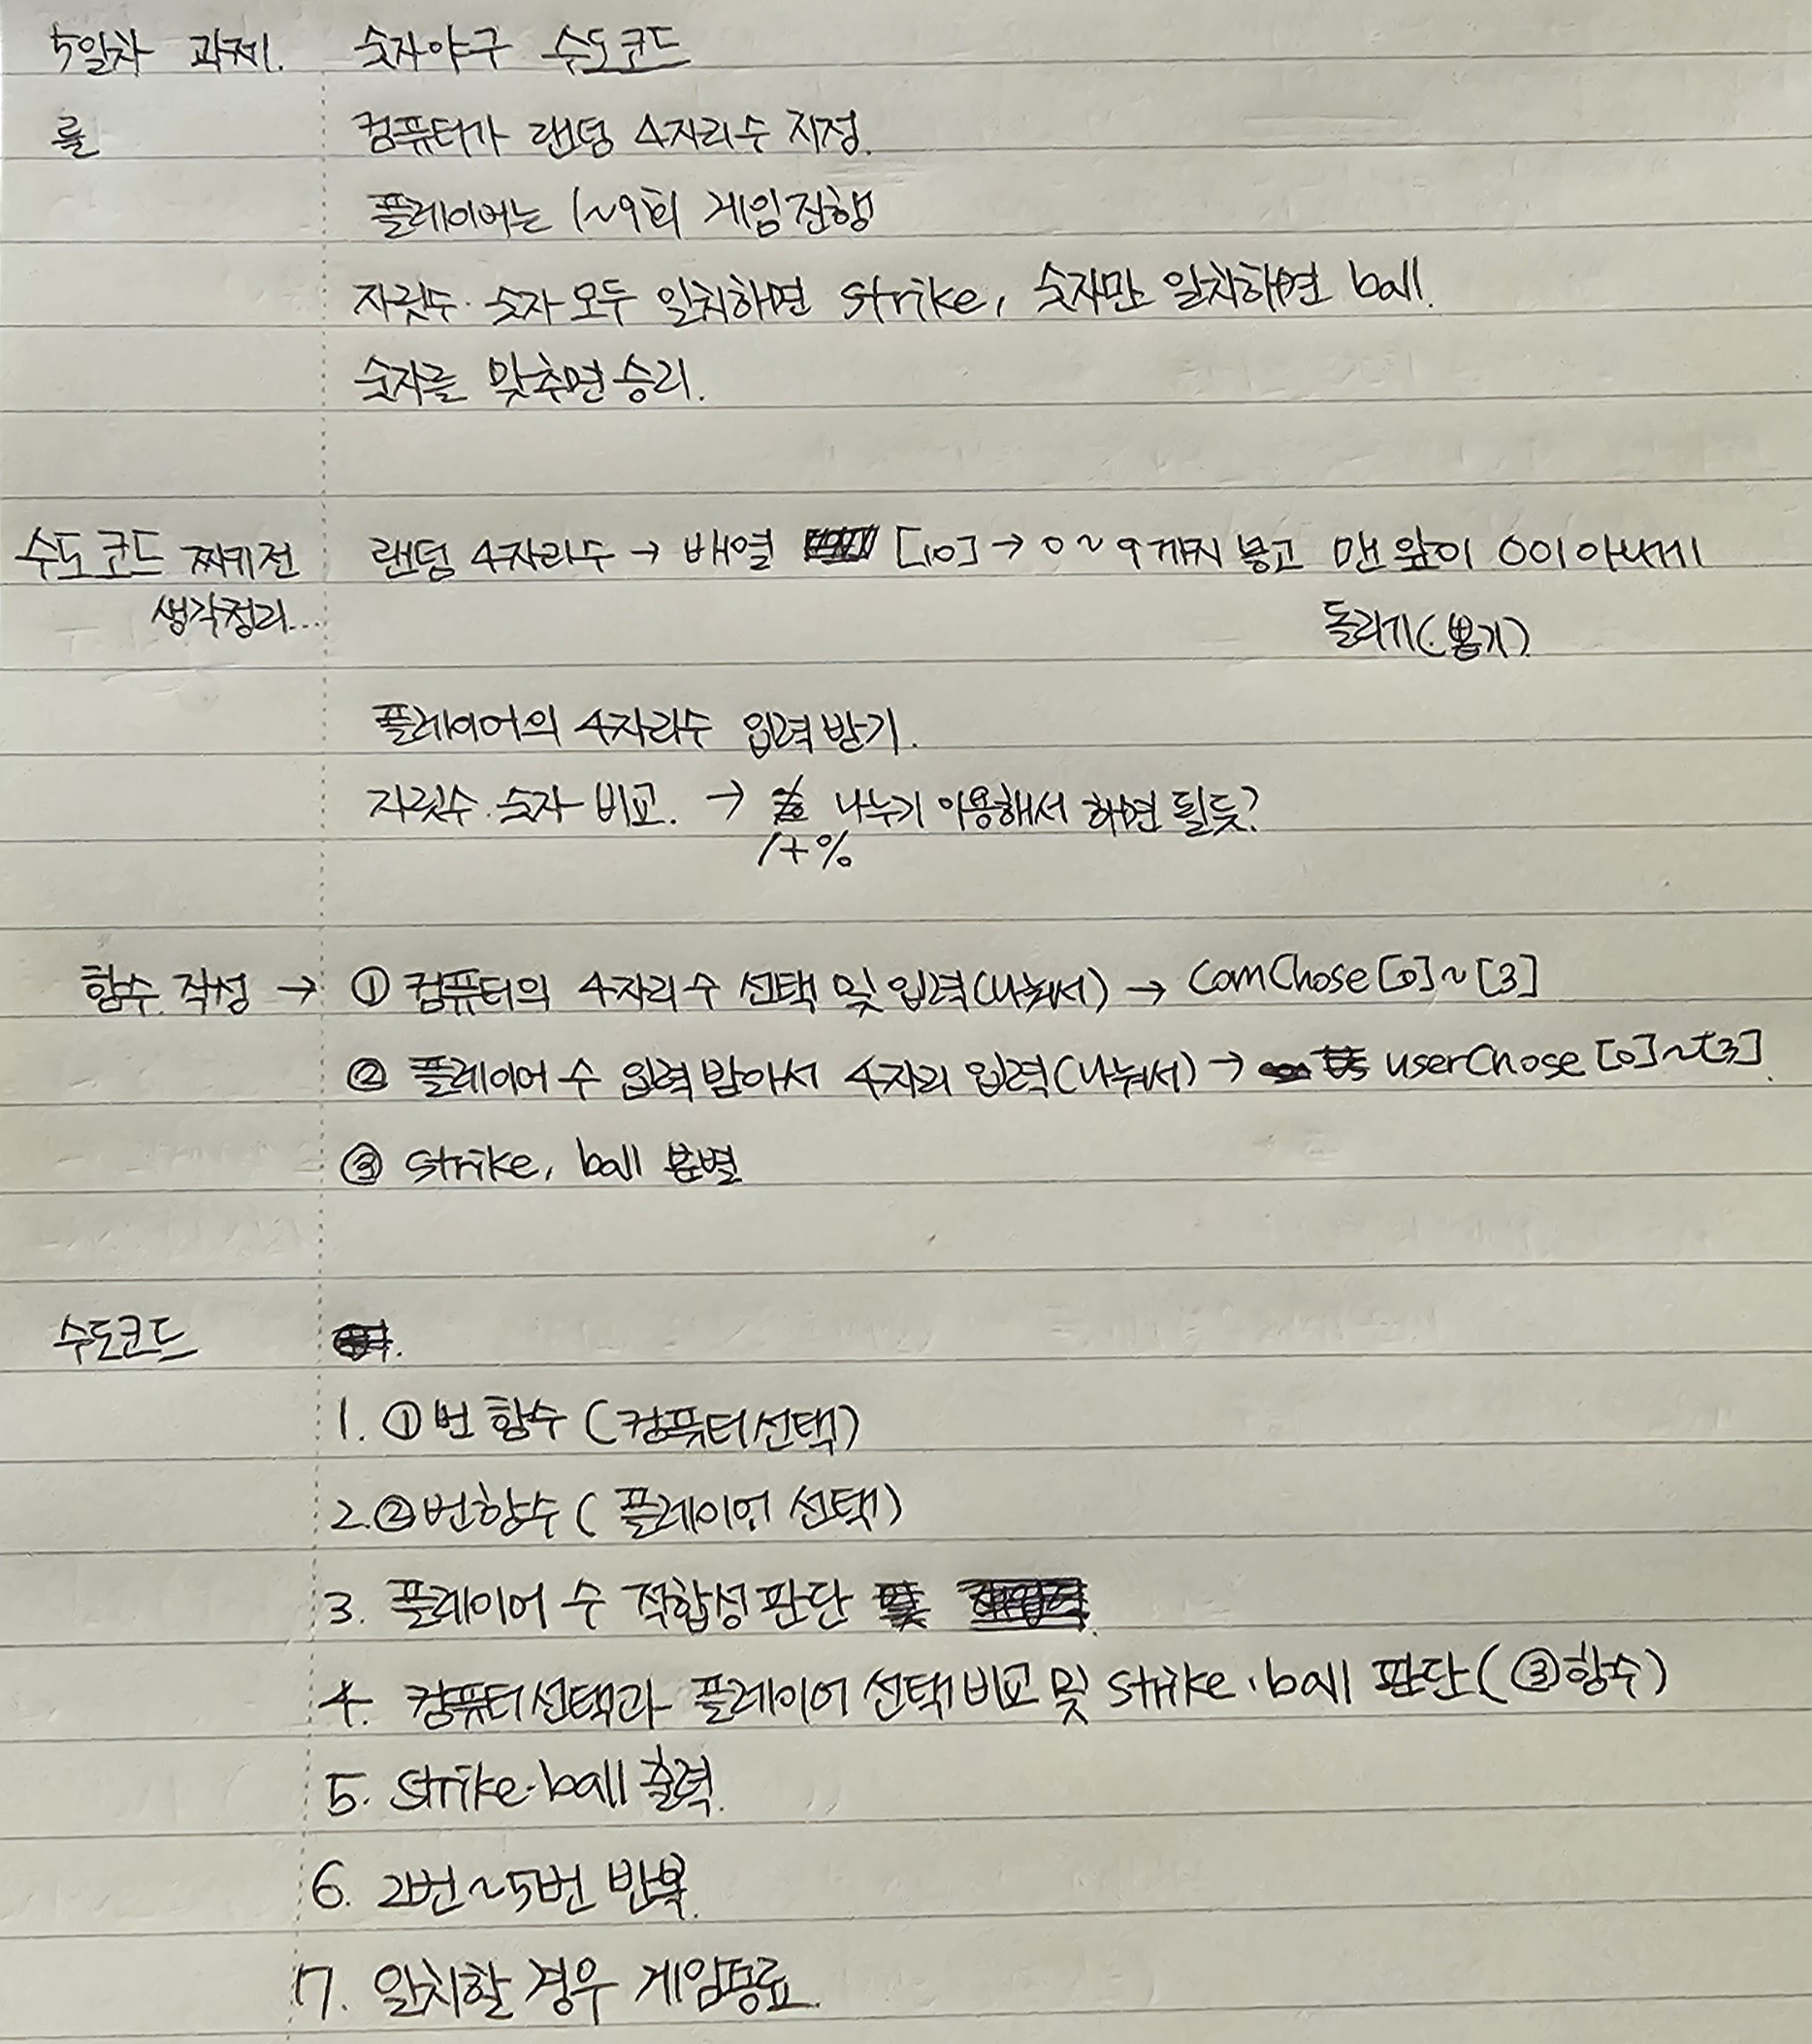 5일차 과제. 숫자야구 수도코드
룰 컴퓨터가 랜덤 4자리수 지정.
플레이어는 1~9회 게임진행
자릿수·숫자 모두 일치하면 strike, 숫자만 일치하면 ball.
숫자를 맞추면 승리.
수도코드 짜기전 랜덤 4자리수 → 배열 [10] → 0~9까지 넣고 맨 앞이 0이 아니게
생각정리... 돌리기(뽑기)
플레이어의 4자리수 입력받기.
자릿수·숫자 비교. → 나누기 이용해서 하면 될듯?
/+%
함수 작성 → ① 컴퓨터의 4자리수 선택 및 입력(나눠서) → comChose[0]~[3]
② 플레이어 수 입력받아서 4자리 입력(나눠서) → userChose[0]~[3].
③ strike, ball 분별
수도코드
1. ①번 함수 (컴퓨터선택)
2. ②번함수 ( 플레이어 선택)
3. 플레이어 수 적합성 판단
4. 컴퓨터선택과 플레이어 선택 비교 및 strike·ball 판단(③함수)
5. strike·ball 출력.
6. 2번~5번 반복.
7. 일치할 경우 게임종료.